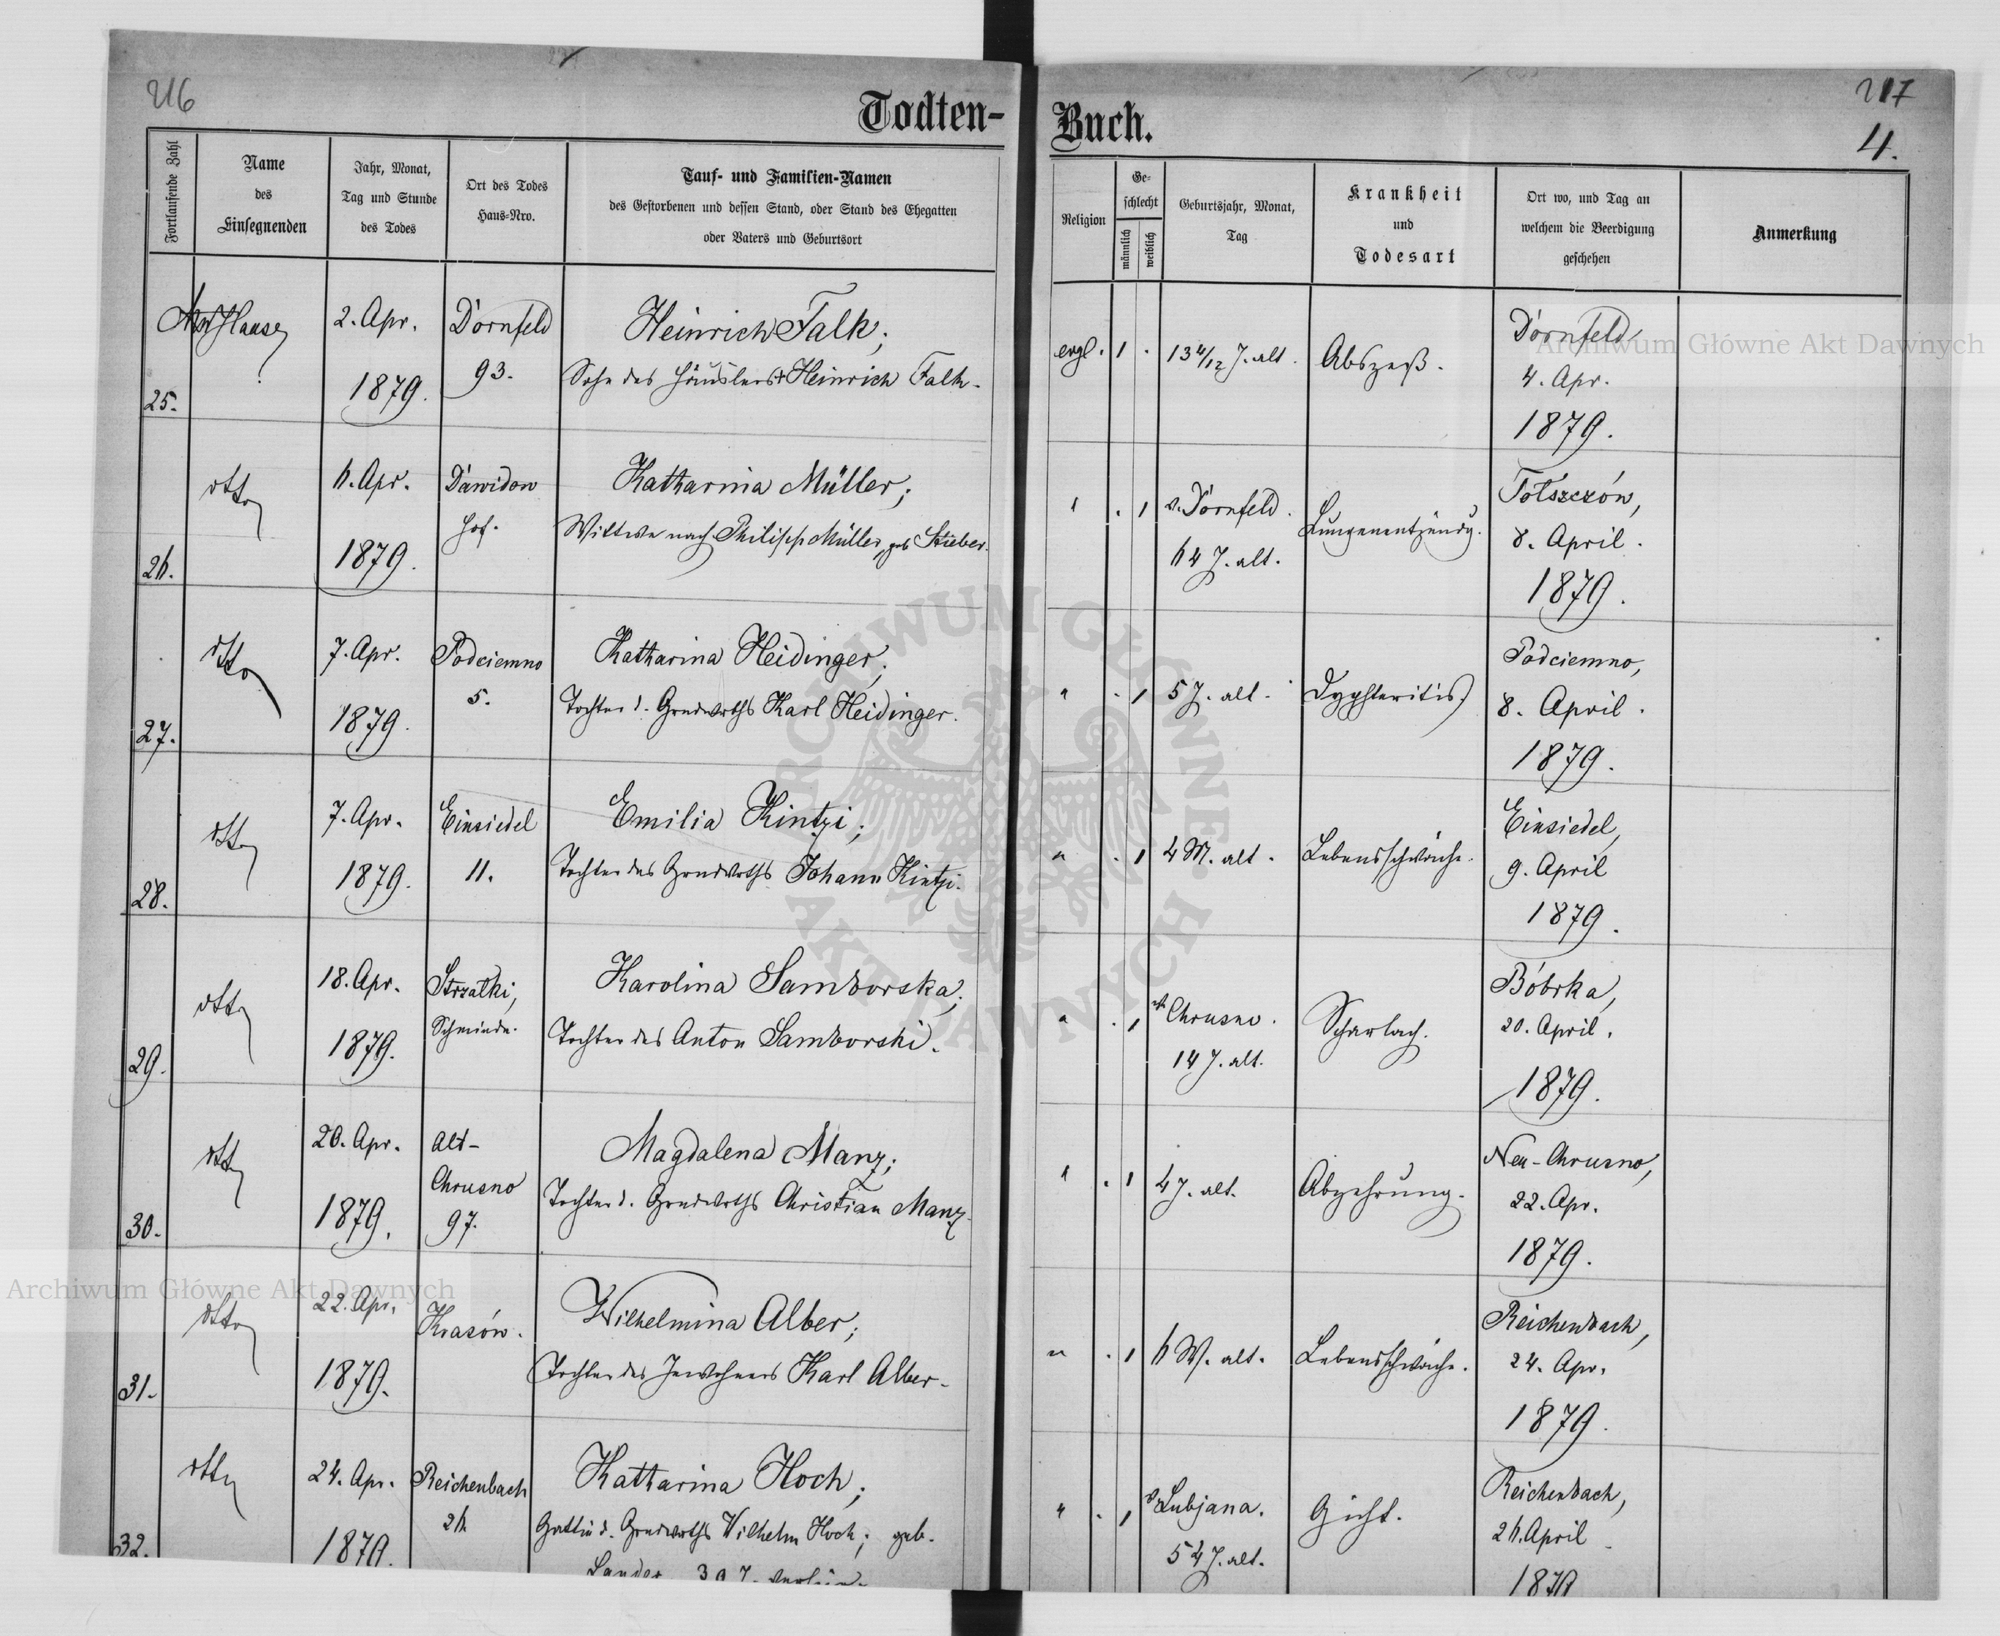 216
Todten-
Fortlaufende Zahl
Name
des
Einsegnenden
Jahr, Monat,
Tag und Stunde
des Todes
Ort des Todes
Haus-Nro.
Tauf- und Familien-Namen
des Gestorbenen und dessen Stand, oder Stand des Ehegatten
oder Vaters und Geburtsort
25.
2. Apr.
1879.
Dornfeld
93.
Heinrich Falk;
Sohn des Häuslers Heinrich Falk.
26.
dtto
6. Apr.
1879.
Dawidow
Hof.
Katharina Müller;
Wittwe nach Philipp Müller, geb. Stieber.
27.
dtto
7. Apr.
1879.
Podciemno
5.
Katharina Heidinger;
Tochter d. Grndwrths Karl Heidinger.
28.
dtto
7. Apr.
1879.
Einsiedel
11.
Emilia Kintzi;
Tochter des Grndwrths Johann Kintzi.
29.
dtto
18. Apr.
1879.
Strzałki,
Karolina Samborska;
Tochter des Anton Samborski.
30.
dtto
20. Apr.
1879.
Alt-
Chrusno
97.
Magdalena Manz;
Tochter d. Grndwrths Christian Manz.
31.
dtto
22. Apr.
1879.
Krasów.
Wilhelmina Alber;
Tochter des Inwohners Karl Alber.
32.
dtto
24. Apr.
1879.
Reichenbach
26
Katharina Hoch;
Gattin d. Grndwrths Wilhelm Hoch; geb.
Sander
217
4.
Buch.
Religion
Ge-
schlecht
männlich
weiblich
Geburtsjahr, Monat,
Tag
Krankheit
und
Todesart
Ort wo, und Tag an
welchem die Beerdigung
geschehen
Anmerkung
evgl. 1 . 13 4/12 J. alt.
Abszeß.
Dornfeld
4. Apr.
1879.
" . 1 v. Dornfeld.
64 J. alt.
Lungenentzündg.
Tołszczów,
8. April.
1879.
" . 1 5 J. alt.
Dyphteritis
Podciemno,
8. April.
1879.
" . 1 4 M. alt.
Lebensschwäche.
Einsiedel,
9. April
1879.
" . 1 Chrusno.
14 J. alt.
Scharlach.
Bóbrka,
20. April.
1879.
" . 1 4 J. alt.
Abzehrung.
Neu-Chrusno,
22. Apr.
1879.
" . 1 6 W. alt.
Lebensschwäche.
Reichenbach,
24. Apr.
1879.
" . 1 Lubjana.
54 J. alt.
Gicht.
Reichenbach,
26. April
1879
Archiwum Główne Akt Dawnych
Archiwum Główne Akt Dawnych
ARCHIWUM GŁÓWNE
AKT DAWNYCH